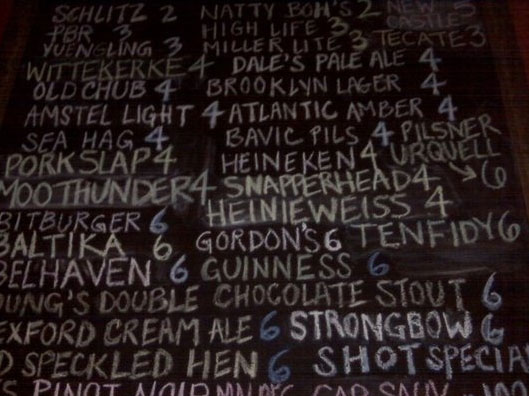 SCHLITZ 2 NATTY BOH'S 2 NEW 5
CASTLE
PBR 3 HIGH LIFE 3
YUENGLING 3 MILLER LITE 3 TECATE 3
WITTEKERKE 4 DALE'S PALE ALE 4
OLD CHUB 4 BROOKLYN LAGER 4
AMSTEL LIGHT 4 ATLANTIC AMBER 4
SEA HAG 4 BAVIC PILS 4 PILSNER
PORKSLAP 4 HEINEKEN 4 URQUELL
MOOTHUNDER 4 SNAPPERHEAD 4 → 6
HEINIEWEISS 4
BITBURGER 6
BALTIKA 6 GORDON'S 6 TENFIDY 6
BELHAVEN 6 GUINNESS 6
OUNG'S DOUBLE CHOCOLATE STOUT 6
EXFORD CREAM ALE 6 STRONGBOW 6
D SPECKLED HEN 6 SHOT SPECIA
PINOT NOIR CAB SAUV